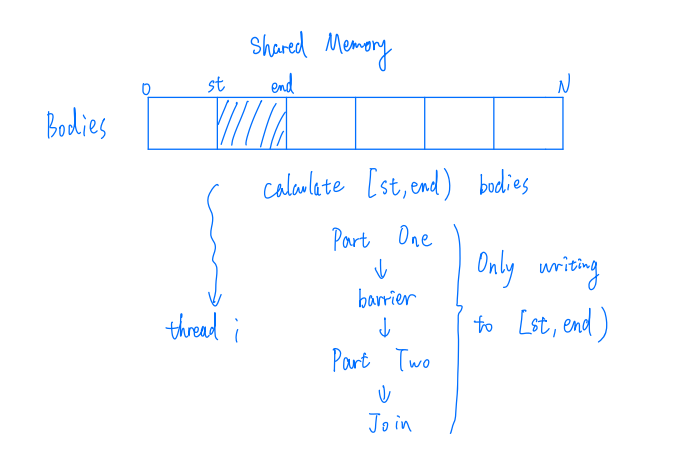 Shared Memory
0 st end N
Bodies
calculate [st, end) bodies
Part One
barrier
Part Two
Join
Only writing
to [st, end)
thread i